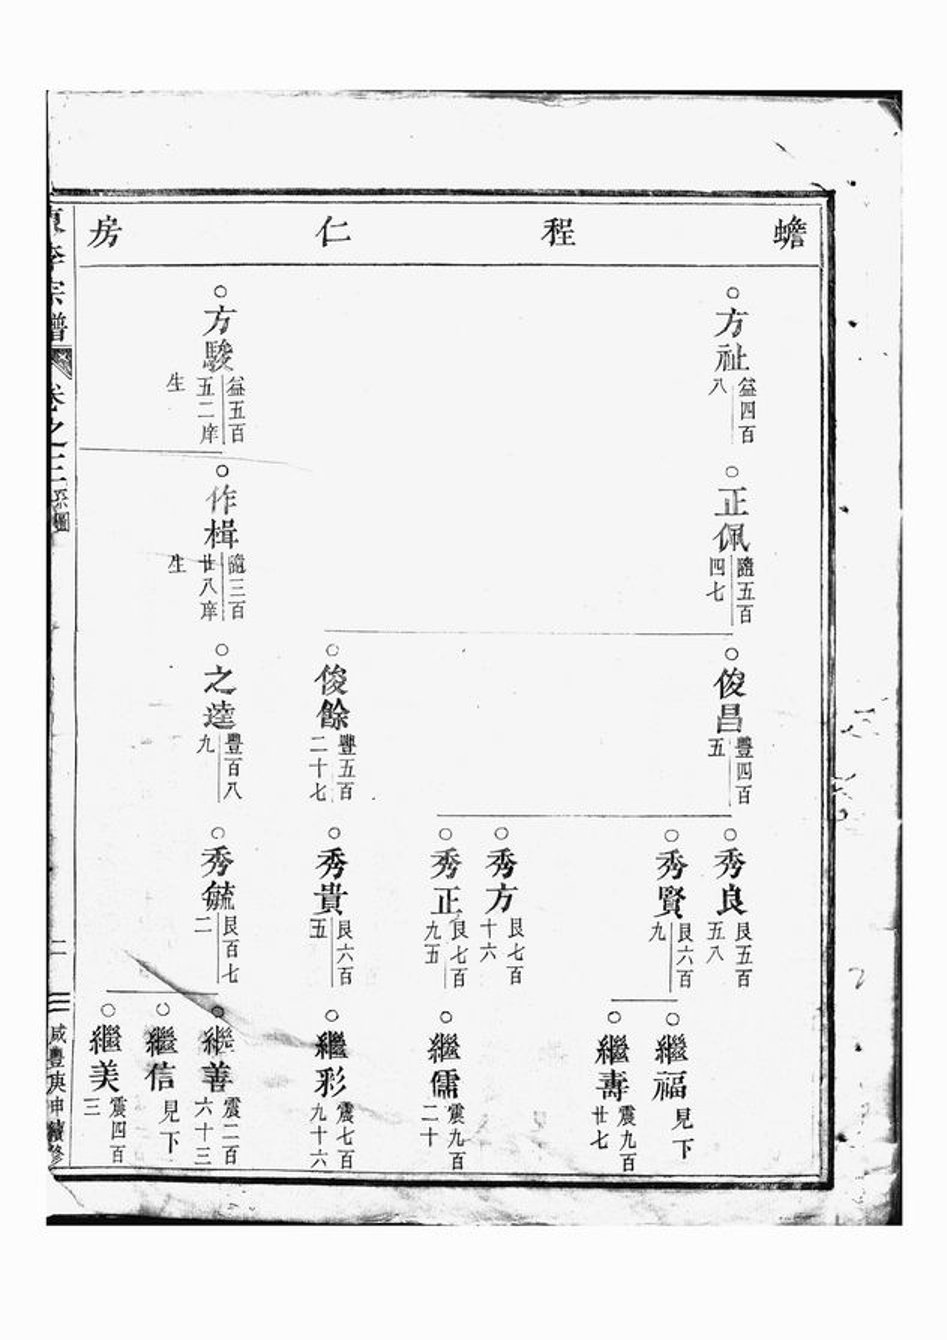 蟾程仁房
方祉
益四百
八
正佩
隨五百
四七
俊昌
豐四百
五
秀良
艮五百
五八
秀賢
艮六百
九
繼福
見下
繼壽
震九百
廿七
秀方
艮七百
十六
秀正
艮七百
九五
繼儒
震九百
二十
俊餘
豐五百
二十七
秀貴
艮六百
五
繼彩
震七百
九十六
方駿
益五百
五二庠
生
作楫
隨三百
廿八庠
生
之逵
豐百八
九
秀毓
艮百七
二
繼善
震二百
六十三
繼信
見下
繼美
震四百
三
李宗譜
卷之三
系圖
二
咸豐庚申續修